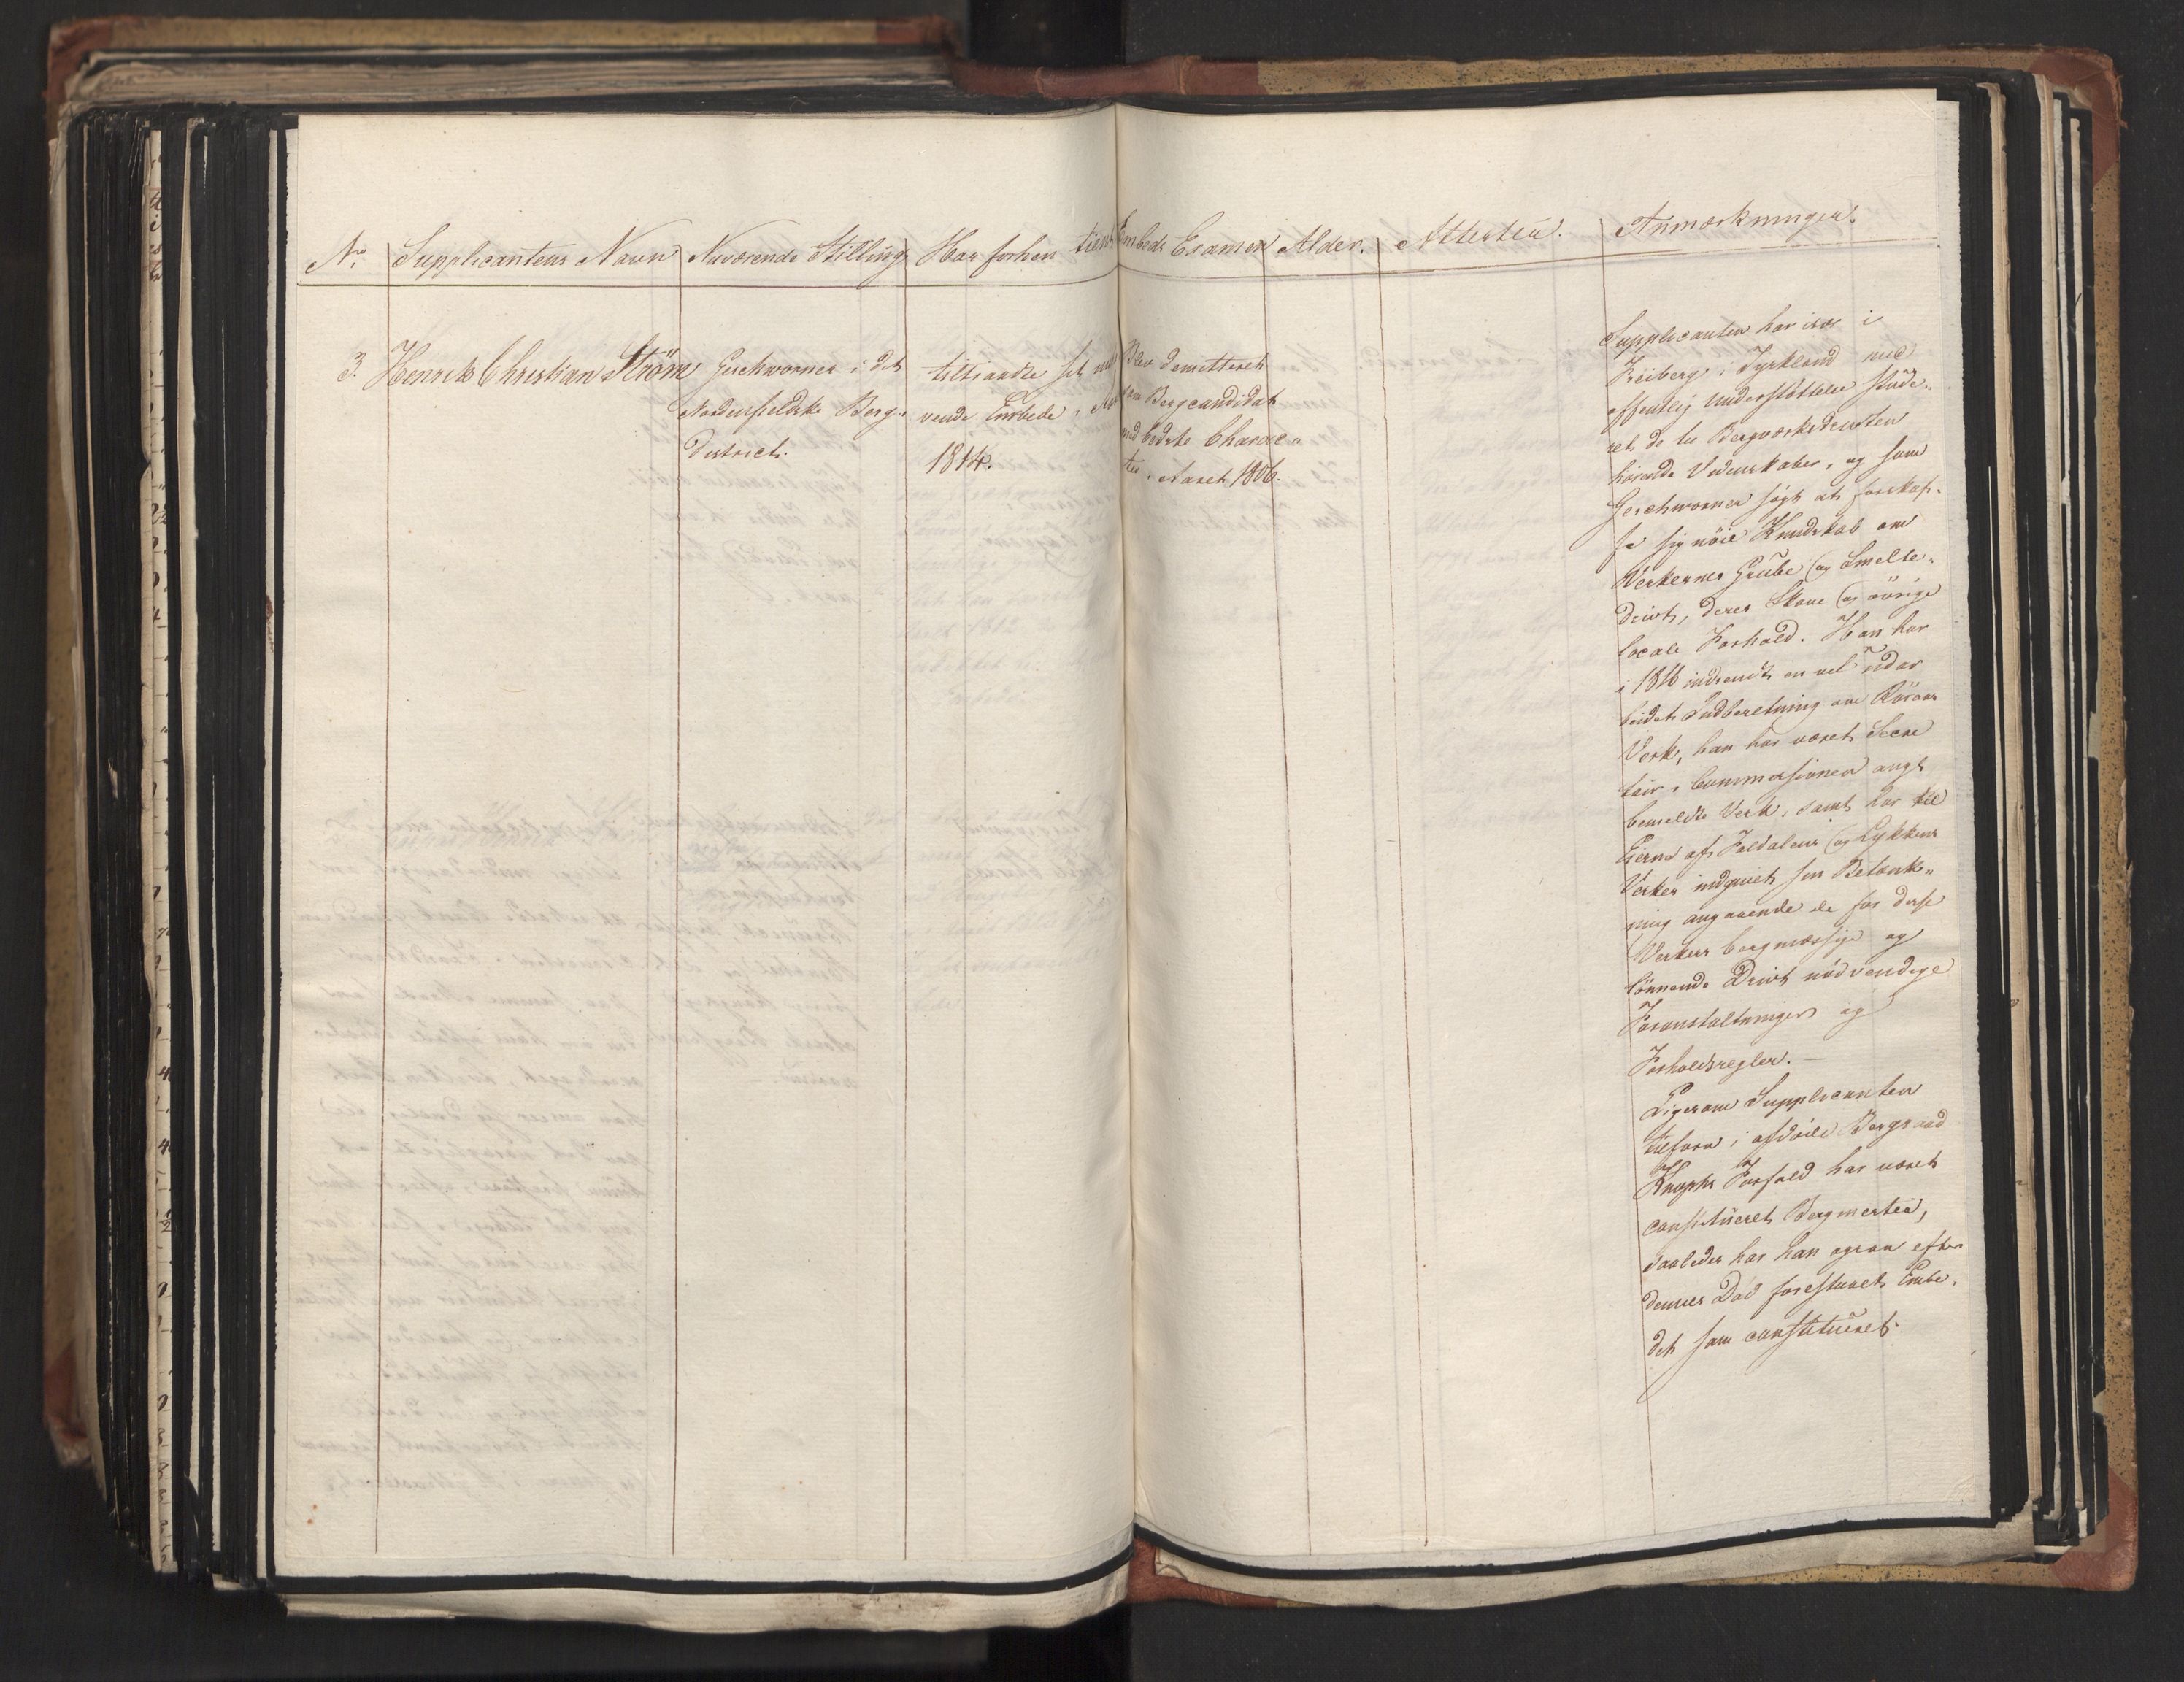 No. Supplicantens Navn Nuværende Stilling Har forhen tient Embeds Examen Alder. Attester. Anmærkninger.
3. Henrik Christian Ström
Geschworner i det
Nordenfieldske Berg-
district.
tiltraadte sit
vende Embede i
1814.
Blev demitteret
som Bergcandidat
med bedste Charac-
ter i Aaret 1806.
Supplicanten har især i
Freiberg i Tyskland med
offentlig Understöttelse stude-
ret de til Bergværksdriften
hörende Videnskaber, og som
Geschworner sögt at forskaf-
fe sig nöie Kundskab om
Verkernes Grube og Smelte-
drivt, deres Skove og övrige
locale Forhold. Han har
i 1816 indsendt en vel udar
beidet Indberetning om Röraas
Verk, han har været Secre
tair i Commissionen angt
bemeldte Verk, samt har til
Eierne af Foldalens og Lykkens
Verker indgivet sin Betænk-
ning angaaende de for disse
Verkers bergmæssige og
lönnende Drivt nödvendige
Foranstaltninger og
Forholdsregler. —
Ligesom Supplicanten
tilforn i afdöde Bergraad
Knophs Forfald har været
constitueret Bergmester,
saaledes har han ogsaa efter
dennes Död forestaaet Embe-
det som constitueret.